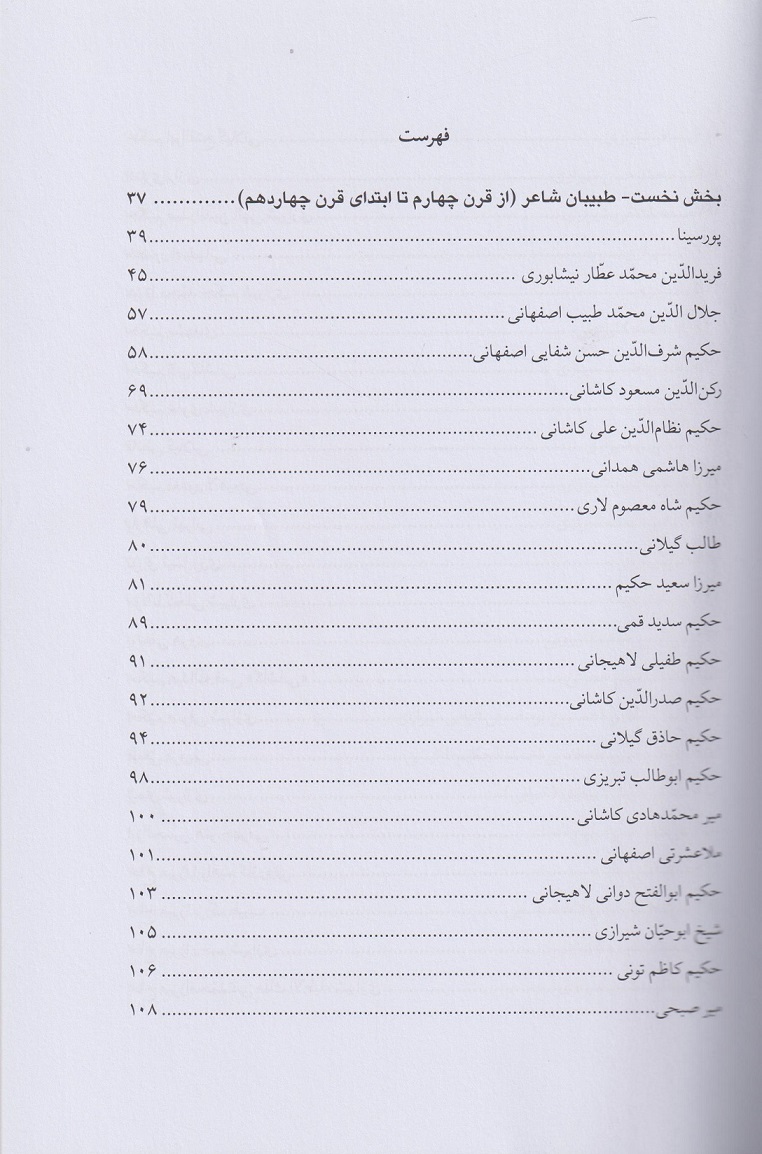 فهرست
بخش نخست- طبیبان شاعر (از قرن چهارم تا ابتدای قرن چهاردهم)............. ۳۷
پورسینا.......................................................................... ۳۹
فریدالدّین محمّد عطّار نیشابوری .................................................... ۴۵
جلال الدّین محمّد طبیب اصفهانی.................................................... ۵۷
حکیم شرف‌الدّین حسن شفایی اصفهانی.............................................. ۵۸
رکن‌الدّین مسعود کاشانی............................................................ ۶۹
حکیم نظام‌الدّین علی کاشانی ....................................................... ۷۴
میرزا هاشمی همدانی............................................................... ۷۶
حکیم شاه معصوم لاری ............................................................ ۷۹
طالب گیلانی...................................................................... ۸۰
میرزا سعید حکیم ................................................................. ۸۱
حکیم سدید قمی................................................................... ۸۹
حکیم طفیلی لاهیجانی ............................................................. ۹۱
حکیم صدرالدّین کاشانی............................................................ ۹۲
حکیم حاذق گیلانی ................................................................ ۹۴
حکیم ابوطالب تبریزی ............................................................. ۹۸
میر محمّدهادی کاشانی............................................................. ۱۰۰
ملاعشرتی اصفهانی ............................................................... ۱۰۱
حکیم ابوالفتح دوانی لاهیجانی ...................................................... ۱۰۳
شیخ ابوحیّان شیرازی .............................................................. ۱۰۵
حکیم کاظم تونی .................................................................. ۱۰۶
میر صبحی........................................................................ ۱۰۸